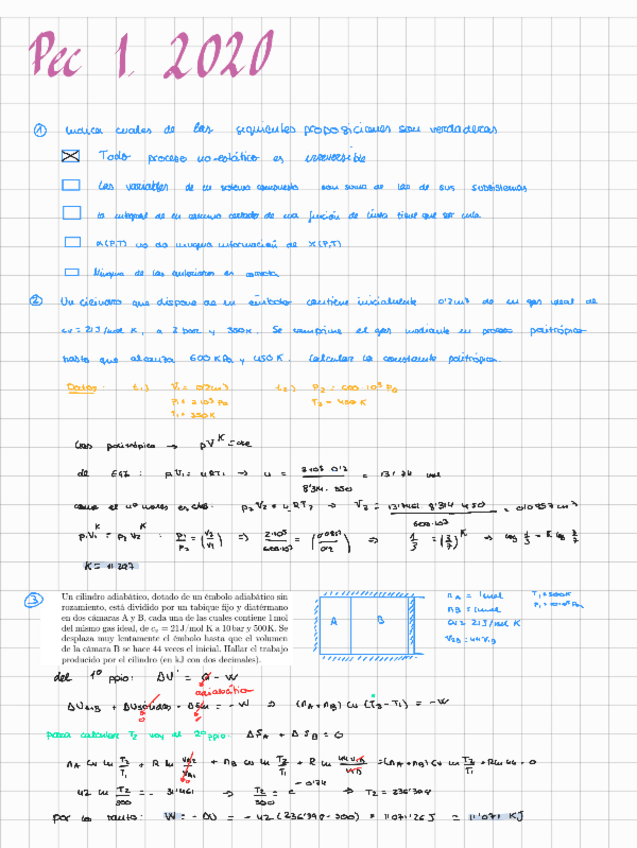 Pec 1. 2020
① Indica cuales de las siguientes proposiciones son verdaderas
Todo proceso no-estático es irreversible
Las variables de un sistema compuesto son suma de las de sus subsistemas
la integral de un camino cerrado de una función de línea tiene que ser nula
α(P,T) no da ninguna información de χ(P,T)
Ninguna de las anteriores es correcta
② Un cilindro que dispone de un émbolo contiene inicialmente 0'2m³ de un gas ideal de
cv = 21 J/mol K, a 2 bar y 350K. Se comprime el gas mediante un proceso politrópico
hasta que alcanza 600 KPa y 450 K. Calcular la constante politrópica.
Datos: t.1) V₁ = 0'2 m³ t.2) P₂ = 600·10³ Pa
P₁ = 2·10⁵ Pa T₂ = 450 K
T₁ = 350K
Gas politrópico → pV^K = cte
de EGI: p₁V₁ = nRT₁ → n = 2·10⁵ 0'2 / 8'314 · 350 = 13'74 mol
como el nº moles es cte: p₂V₂ = nRT₂ → V₂ = 13'7461 8'314 450 / 600·10³ = 0'0857 m³
p₁V₁^K = p₂V₂^K : P₁/P₂ = (V₂/V₁)^K ⇒ 2·10⁵/600·10³ = (0'0857/0'2)^K ⇒ 1/3 = (3/7)^K → log 1/3 = K log 3/7
K = 1'297
③ Un cilindro adiabático, dotado de un émbolo adiabático sin
rozamiento, está dividido por un tabique fijo y diatérmano
en dos cámaras A y B, cada una de las cuales contiene 1 mol
del mismo gas ideal, de cᵥ = 21 J/mol K a 10 bar y 500 K. Se
desplaza muy lentamente el émbolo hasta que el volumen
de la cámara B se hace 44 veces el inicial. Hallar el trabajo
producido por el cilindro (en kJ con dos decimales).
A B
nA = 1mol T₁ = 500K
nB = 1mol P₁ = 10·10⁵ Pa
cv = 21 J/mol K
V₂B = 44V₁B
del 1º ppio: ΔU = Q - W
adiabático
ΔUA+B + ΔUsólidos + ΔEm = -W ⇒ (nA + nB) cv (T₂ - T₁) = -W
para calcular T₂ voy al 2º ppio: ΔSA + ΔSB = 0
nA cv ln T₂/T₁ + R ln VA₂/VA₁ + nB cv ln T₂/T₁ + R ln 44V₁B/V₁B = (nA + nB) cv ln T₂/T₁ + R ln 44 = 0
42 ln T₂/500 = - 31'461 → T₂/500 = e^-0'74 ⇒ T₂ = 236'398
por lo tanto: W = - ΔU = - 42 (236'398 - 500) = 11071'26 J = 11'071 KJ